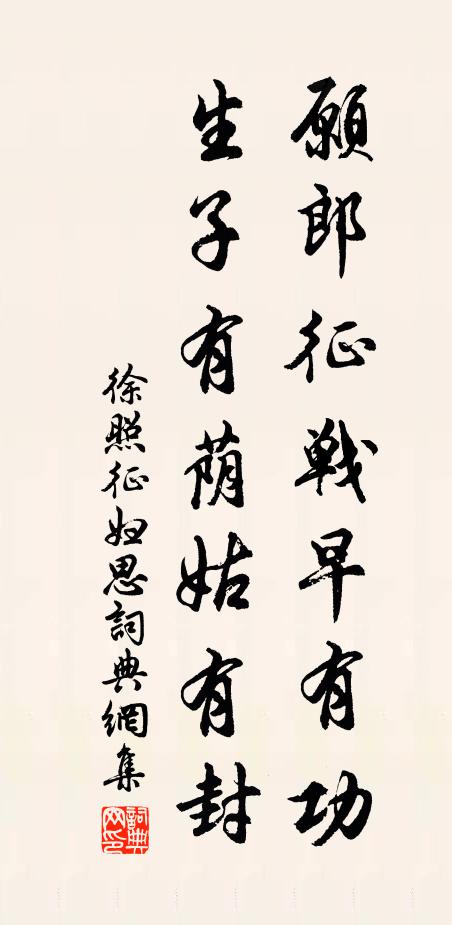 願郎征戰早有功
生子有蔭姑有封
徐照征妇思詞典網集
詞典网印